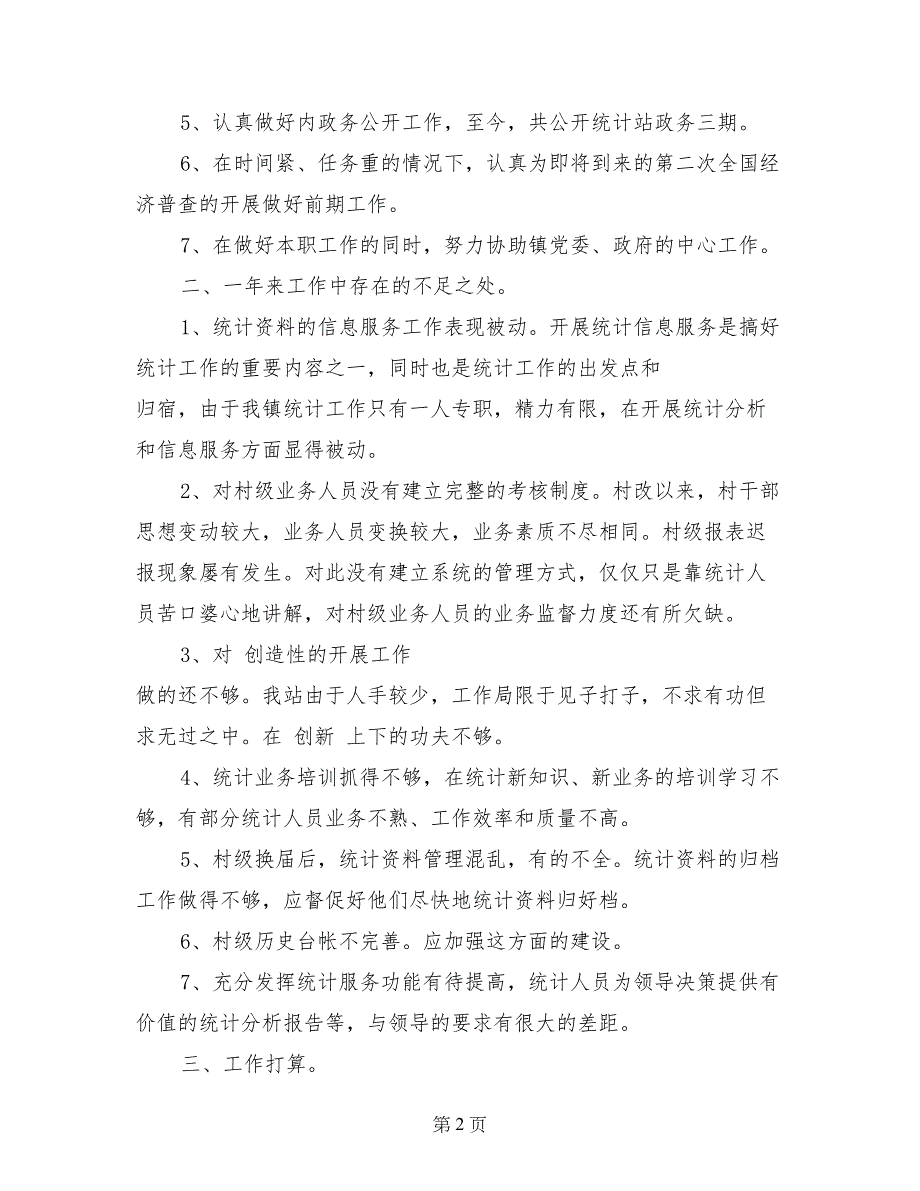 5、认真做好内政务公开工作，至今，共公开统计站政务三期。
6、在时间紧、任务重的情况下，认真为即将到来的第二次全国经
济普查的开展做好前期工作。
7、在做好本职工作的同时，努力协助镇党委、政府的中心工作。
二、一年来工作中存在的不足之处。
1、统计资料的信息服务工作表现被动。开展统计信息服务是搞好
统计工作的重要内容之一，同时也是统计工作的出发点和
归宿，由于我镇统计工作只有一人专职，精力有限，在开展统计分析
和信息服务方面显得被动。
2、对村级业务人员没有建立完整的考核制度。村改以来，村干部
思想变动较大，业务人员变换较大，业务素质不尽相同。村级报表迟
报现象屡有发生。对此没有建立系统的管理方式，仅仅只是靠统计人
员苦口婆心地讲解，对村级业务人员的业务监督力度还有所欠缺。
3、对 创造性的开展工作
做的还不够。我站由于人手较少，工作局限于见子打子，不求有功但
求无过之中。在 创新 上下的功夫不够。
4、统计业务培训抓得不够，在统计新知识、新业务的培训学习不
够，有部分统计人员业务不熟、工作效率和质量不高。
5、村级换届后，统计资料管理混乱，有的不全。统计资料的归档
工作做得不够，应督促好他们尽快地统计资料归好档。
6、村级历史台帐不完善。应加强这方面的建设。
7、充分发挥统计服务功能有待提高，统计人员为领导决策提供有
价值的统计分析报告等，与领导的要求有很大的差距。
三、工作打算。
第 2 页